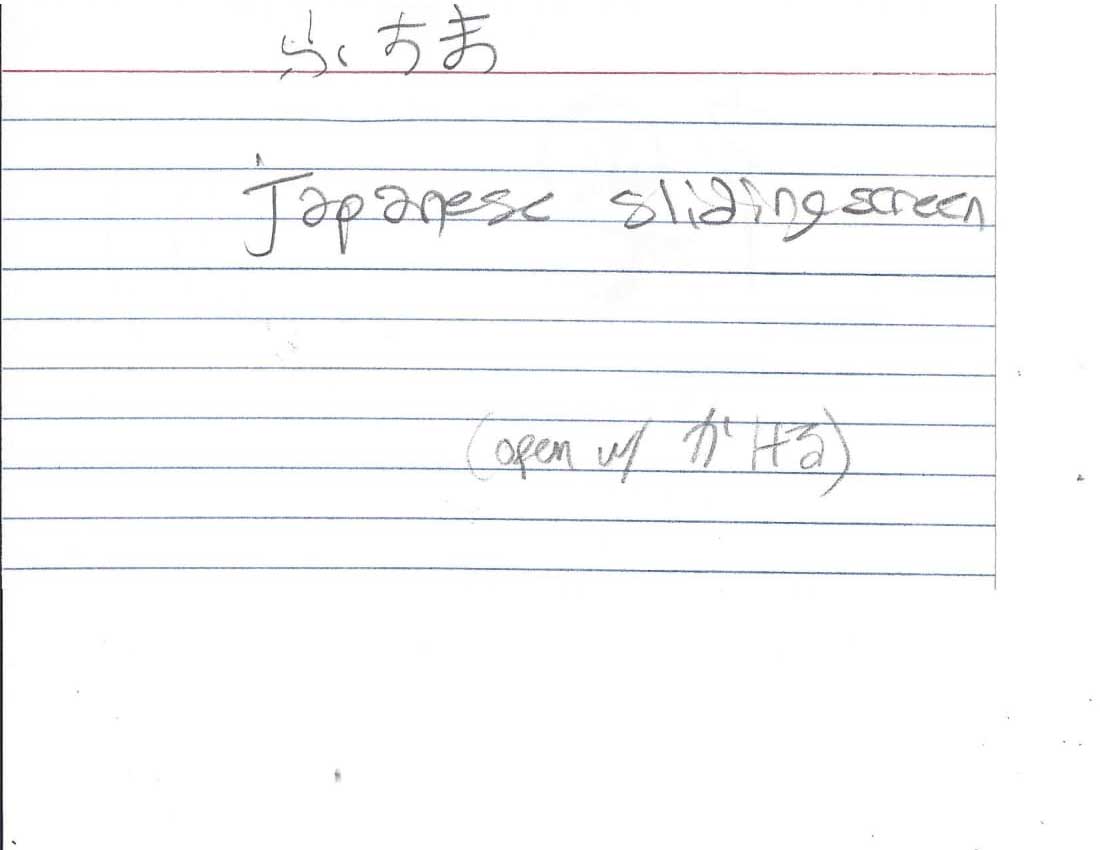 ふすま
Japanese sliding screen
(open w/ かける)